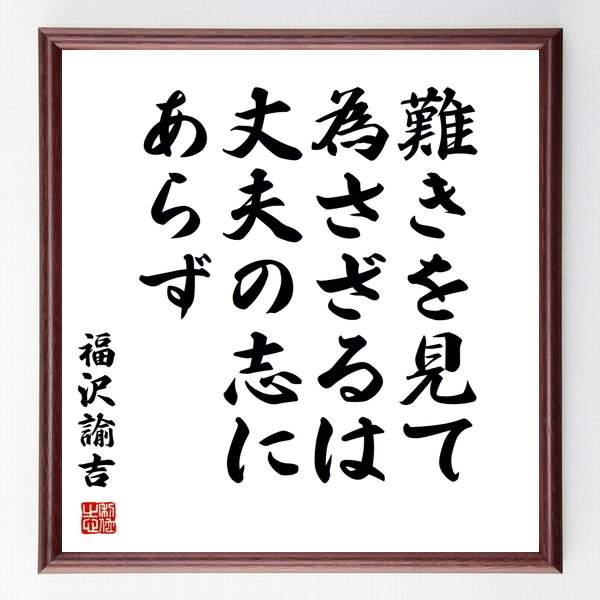 難きを見て
為さざるは
丈夫の志に
あらず
福沢諭吉